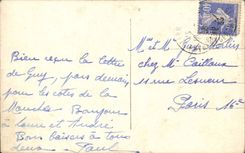 Bien reçu la lettre
de Guy, pars demain
pour les côtes de la
Manche Bonjour
à Louis et André
Bons baisers à tous
Paul
Mr et Mme
chez Mr Cailloux
11 rue Lesueur
Paris 16e